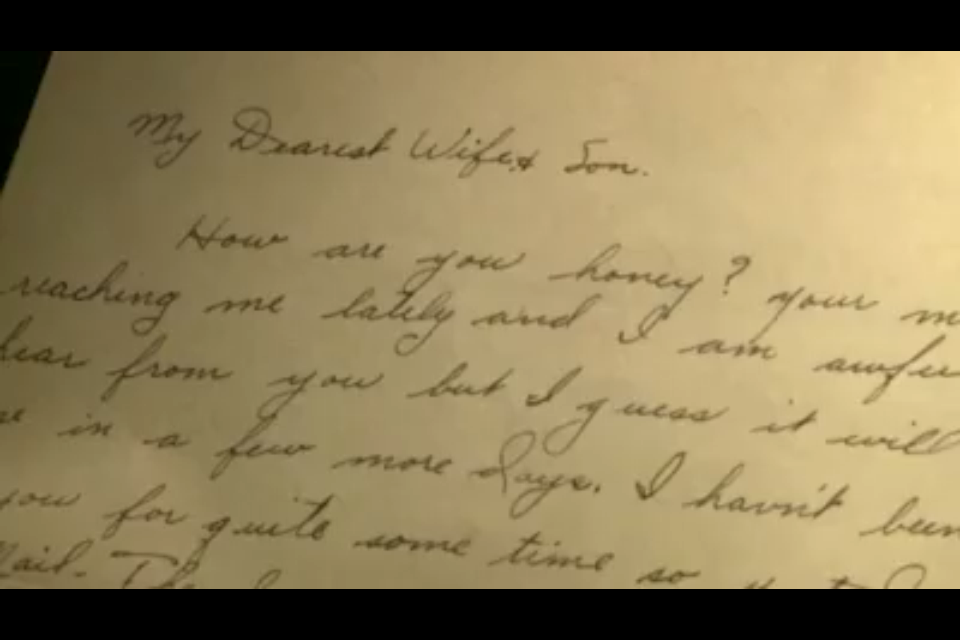 My Dearest Wife & Son.
How are you honey? your
reaching me lately and I am
hear from you but I guess it will
in a few more days. I havn't been
you for quite some time so